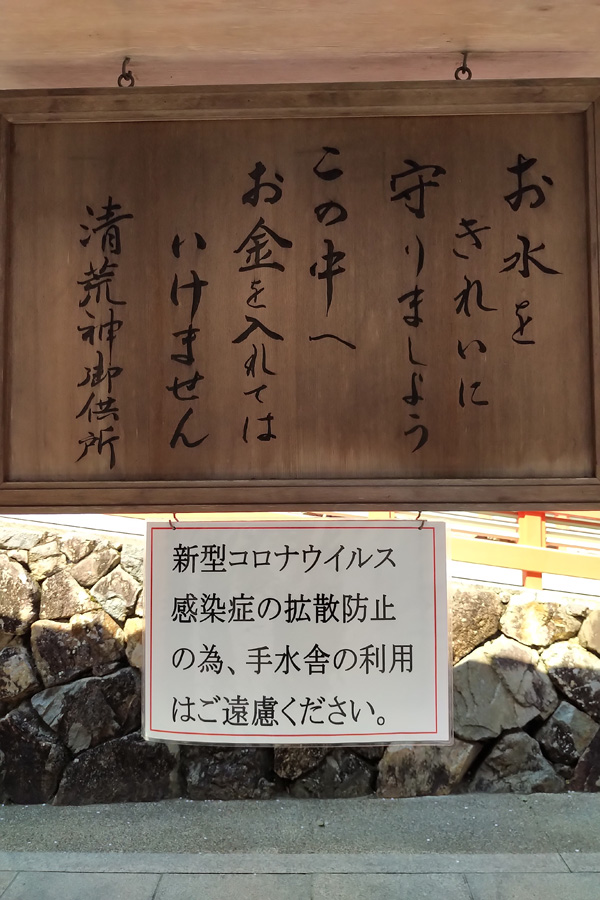 お水を
きれいに
守りましょう
この中へ
お金を入れては
いけません
清荒神御供所
新型コロナウイルス
感染症の拡散防止
の為、手水舎の利用
はご遠慮ください。